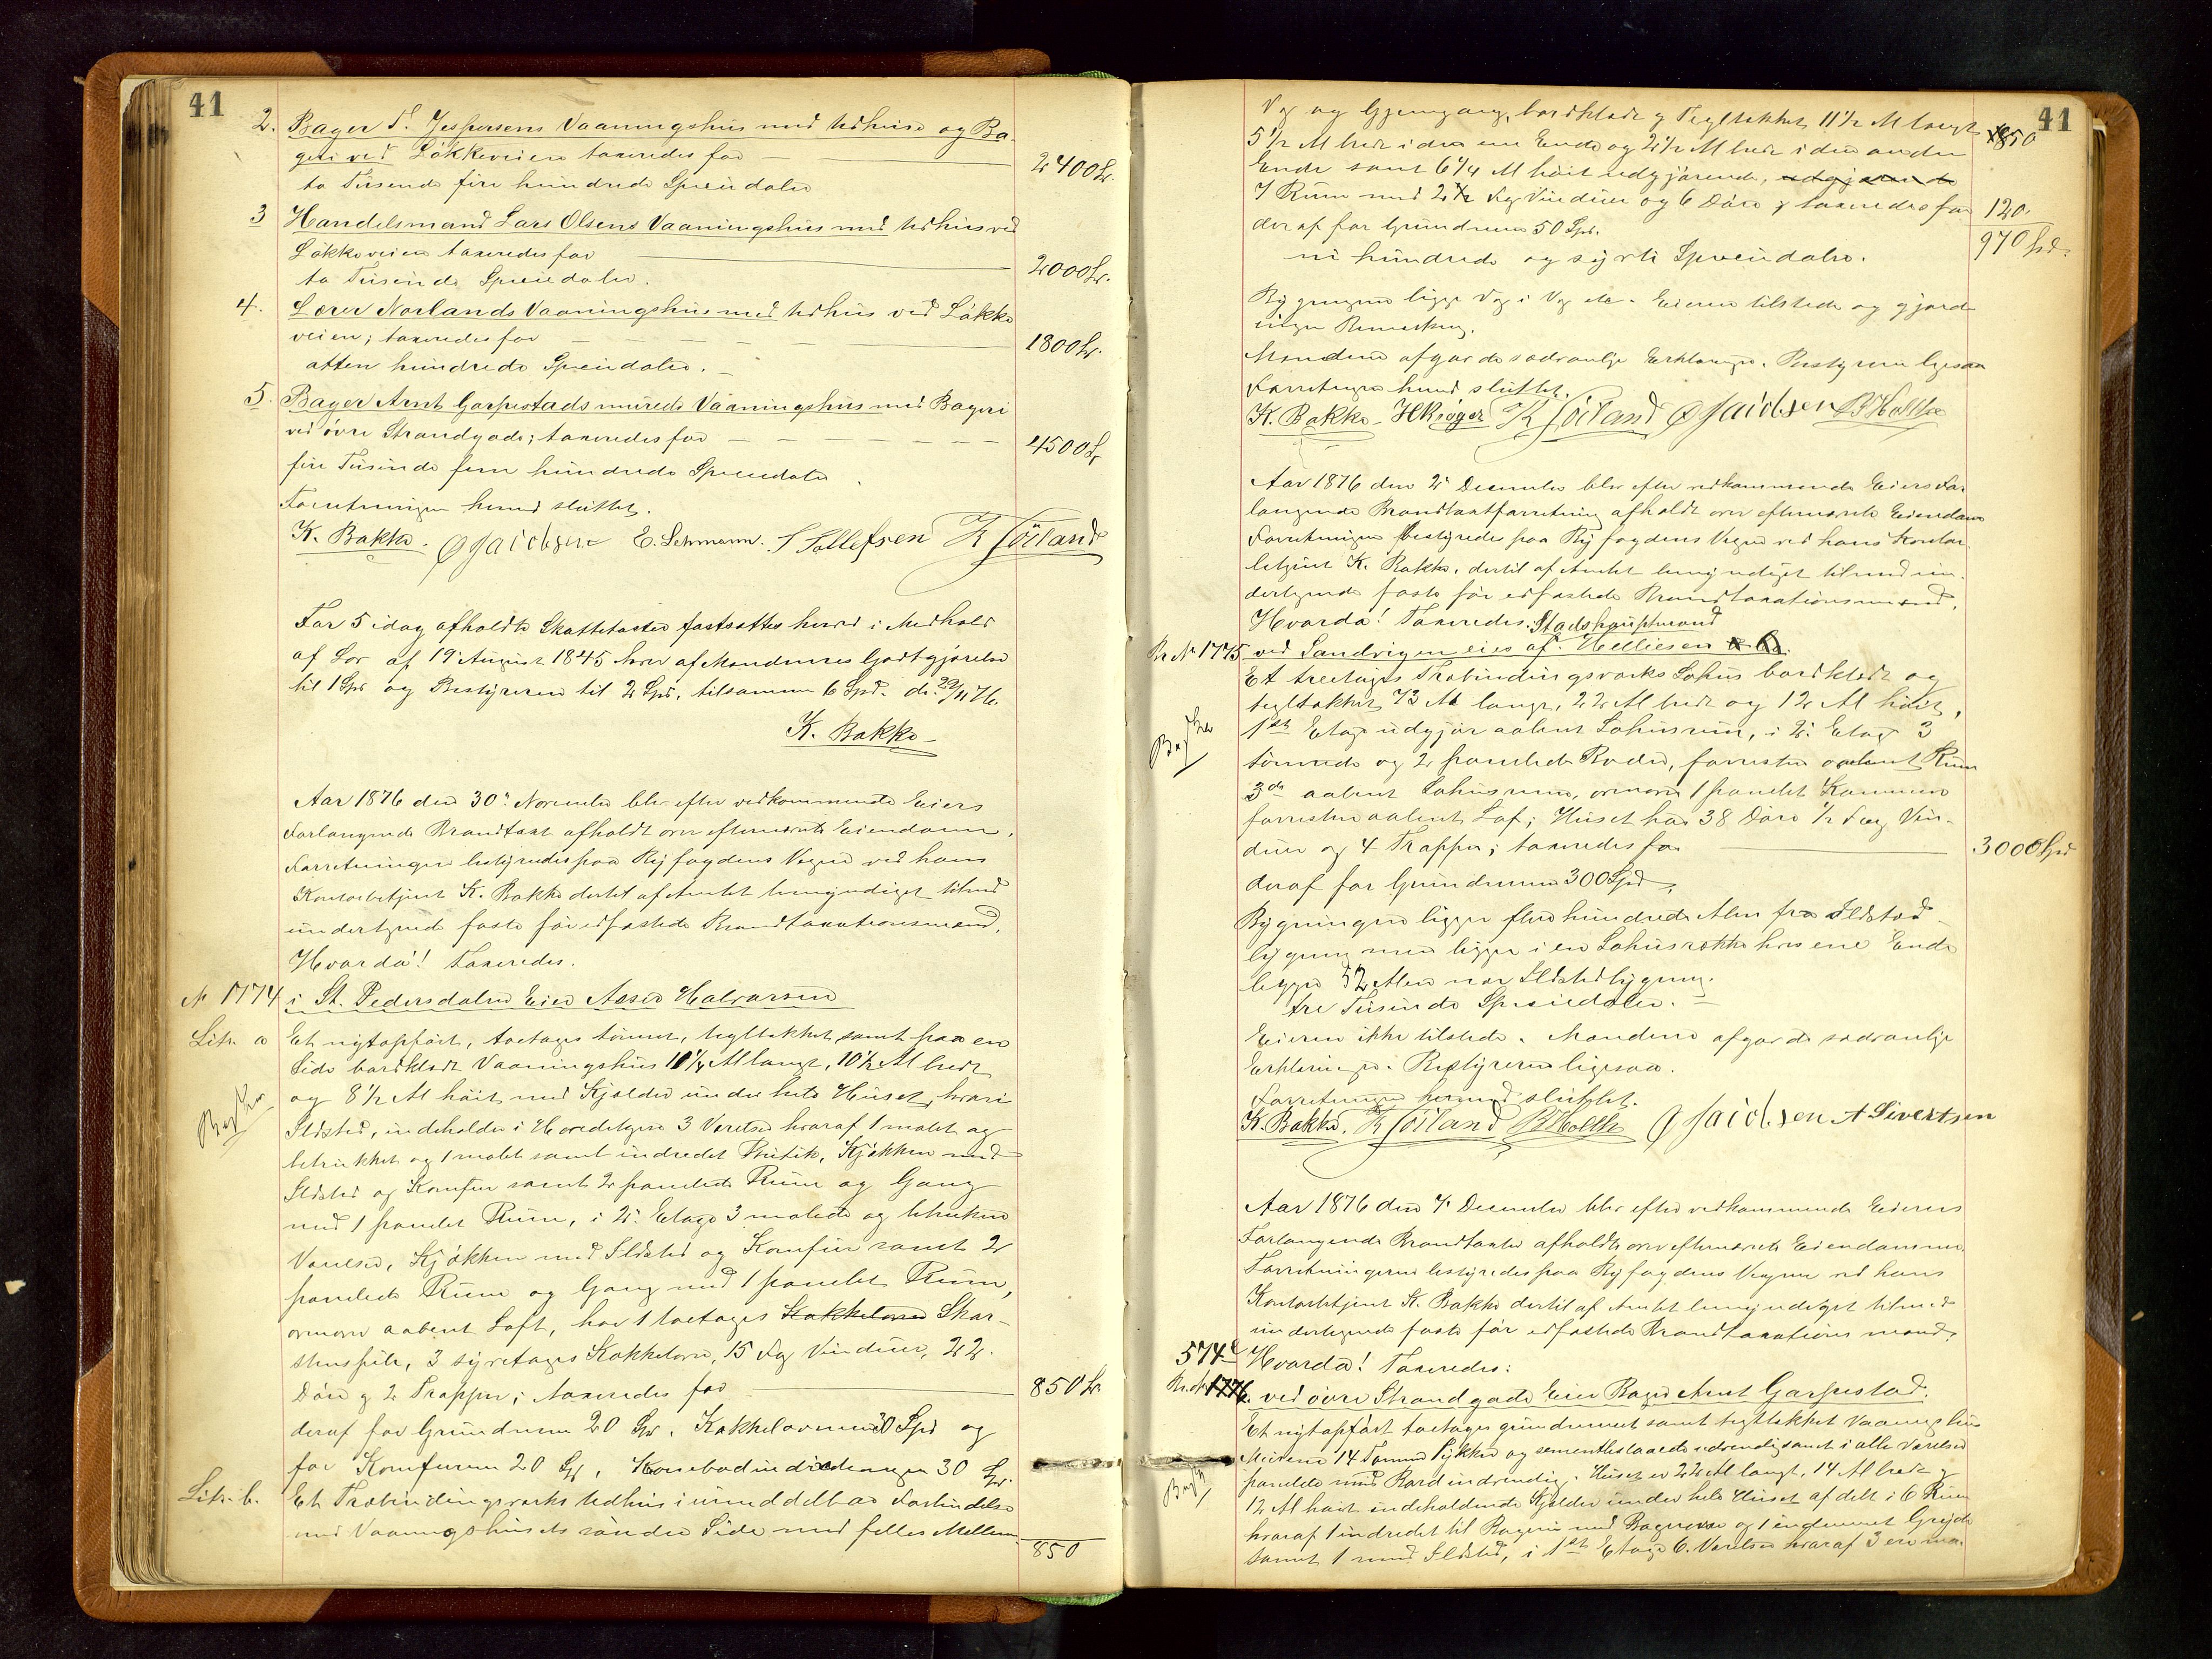 41
2. Bager T. Jespersens Vaaningshus med Udhuse og Ba-
geri ved Løkkeveien taxeredes for — 2400 Sp.
to Tusende fire hundrede Speciedaler
3 Handelsmand Lars Olsens Vaaningshus med Udhus ved
Løkkeveien taxeredes for — 2000 Sp.
to Tusinde Speciedaler.
4. Lærer Norlands Vaaningshus med Udhus ved Løkke
veien; taxeredes for — 1800 Sp.
atten hundrede Speciedaler.
5. Bager Arnt Garpestads murede Vaaningshus med Bageri
ved øvre Strandgade; taxeredes for — 4500 Sp
fire Tusinde fem hundrede Speciedaler
Forretningen hermed sluttet.
K. Bakke. O Jacobsen E. Lehmann. T Tollefsen K Soiland
For 5 idag afholdte Skattetaxter fastsattes herved i Medhold
af Lov af 19 August 1845 hver af Mændenes Godtgjørelse
til 1 Spd og Bestyreren til 2 Spd. tilsammen 6 Spd. d. 29/11 76.
K. Bakke
Aar 1876 den 30 November blev efter vedkommende Eiers
Forlangende Brandtaxt afholdt over eftermævnte Eiendom.
Forretningen bestyredes paa Byfogdens Vegne ved hans
Kontorbetjent K. Bakke dertil af Amtet bemyndiget tilmed
undertegnede faste før edfæstede Brandtaxationsmænd.
Hvorda! Taxeredes.
No 1774 i St. Pedersdalen Eier Asser Halvorsen
Litr. a Et nytopført, toetages tømret, tegltækket samt paa en
Side bordklædt Vaaningshus 10 1/4 Al langt, 10 1/2 Al bredt
og 8 1/2 Al høit med Kjelder under hele Huset, hvori
Ildsted, indeholder i Hovedetagen 3 Værelser hvoraf 1 malet og
betrukket og 1 malet samt indredet Butik, Kjøkken med
Ildsted og Komfur samt 2 panelede Rum og Gang
med 1 panelet Rum, i 2. Etage 3 malede og betrukne
Værelser, Kjøkken med Ildsted og Komfur samt 2
panelede Rum og Gang med 1 panelet Rum,
ovenover aabent Loft, har 1 toetages Kakkelovn Skor-
stenspibe, 3 Kakkelovne, 15 Fag Vinduer, 22
Døre og 2 Trapper; taxeredes for — 850 Sp.
deraf for Grundmur 20 Sp. Kakkelovnene 30 Spd og
for Komfurene 20 Sp, 30 Sp.
Litr. b. Et Træbindingsværks Udhus i umiddelbar Forbindelse
med Vaaningshusets søndre Side med fælles Mellem-
850
41
Væg og Gjennemgang, bordklædt og Tegltækket 11 1/2 Al langt 850
5 1/2 Al bredt i den ene Ende og 2 1/2 Al bredt i den anden
Ende samt 6 1/4 Al høit udgjørende, udgjørende
7 Rum med 2 1/2 Fag Vinduer og 6 Døre; taxeredes for 120.
deraf for Grundmur 50 Spd. 970 Spd.
ni hundrede og sytti Speciedaler.
Bygningen ligge Væg i Væg etc. Eieren tilstede og gjorde
ingen Bemærkning.
Mændene afgav de sædvanlige Erklæringer. Bestyreren ligesaa
Forretningen hermed sluttet.
K. Bakke HKrøger K Soiland O Jacobsen B Holthe
Aar 1876 den 2 December blev efter vedkommende Eiers For
langende Brandtaxtforretning afholdt over eftermævnte Eiendom
Forretningen bestyredes paa Byfogdens Vegne ved hans Kontor-
betjent K. Bakke, dertil af Amtet bemyndiget tilmed un-
dertegnede faste før edfæstede Brandtaxationsmænd.
Hvorda! Taxeredes. Stadshauptmand
Br No 1775 ved Sandvigen eies af Helliesen & Co.
Et treetages Træbindingsværks Søhus bordklædt og
tegltækket 73 Al langt, 22 Al bredt og 12 Al høit,
1ste Etage udgjør aabent Søhusrum, i 2. Etage 3
tømrede og 2 panelede Boder, forresten aabent Rum
3de aabent Søhusrum, ovenover 1 panelet Kammer
forresten aabent Loft; Huset har 38 Døre 1/2 Fag Vin-
duer og 4 Trapper; taxeredes for — 3000 Spd
deraf for Grundmur 300 Spd.
Bygningen ligger flere hundrede Alen fra Ildsted-
bygning men ligger i en Søhusrække hvis ene Ende
ligger 32 Alen nær Ildstedbygning.
tre Tusinde Speciedaler.
Eieren ikke tilstede. Mændene afgav de sædvanlige
Erklæringer. Bestyreren ligesaa.
Forretningen hermed sluttet.
K. Bakke. K Soiland B Holthe O Jacobsen A Sivertsen
Aar 1876 den 7 December blev efter vedkommende Eieres
Forlangende Brandtaxter afholdte over eftermævnte Eiendomme.
Forretningerne bestyredes paa Byfogdens Vegne ved hans
Kontorbetjent K. Bakke dertil af Amtet bemyndiget tilmed
undertegnede faste før edfæstede Brandtaxationsmænd.
574 Hvorda! Taxeredes:
Br. No 1776. ved øvre Strandgade Eier Bager Arnt Garpestad.
Et nytopført toetages grundmuret samt tegltækket Vaaningshus
Murene 14 Tommer tykke og cementbeslaaede udvendig samt i alle Værelser
panelede med Bord indvendig. Huset er 22 Al langt, 14 Al bredt og
12 Al høit indeholdende Kjelder under hele Huset afdelt i 6 Rum
hvoraf 1 indredet til Bageri med Bagerovn og 1 indmuret Gryde
samt 1 med Ildsted, i 1ste Etage 6 Værelser hvoraf 3 ere ma-